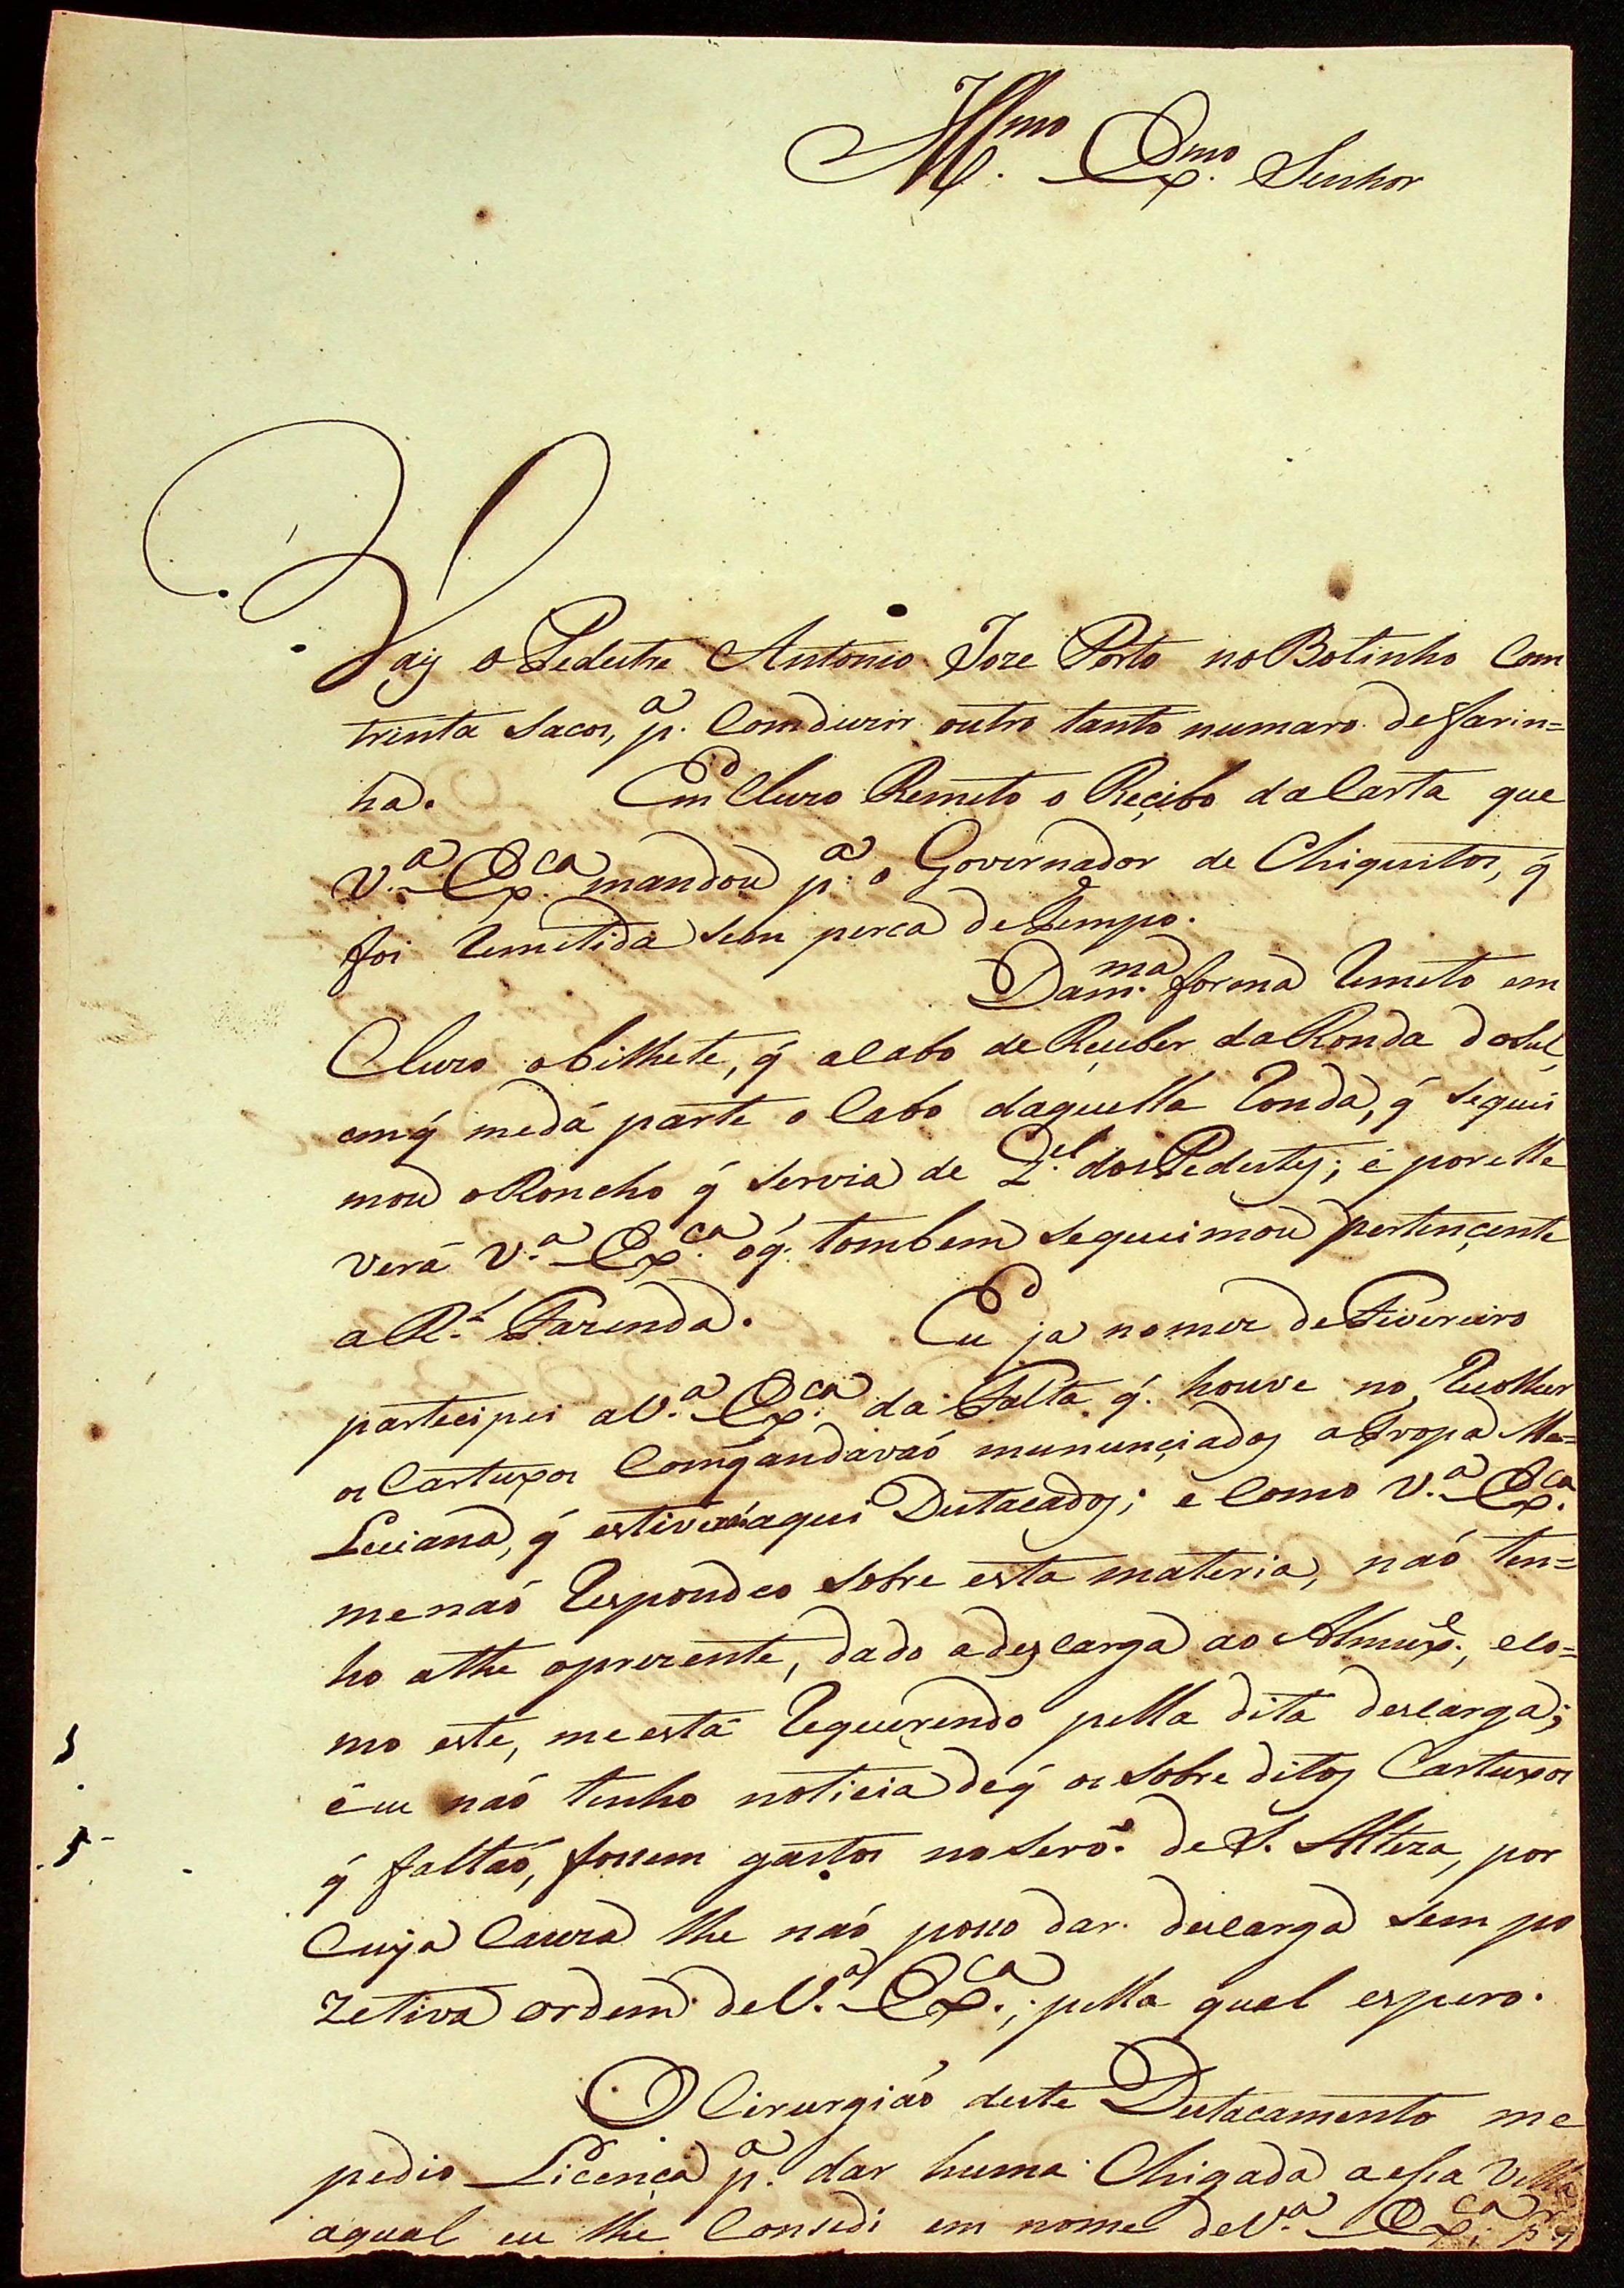 Ill.mo Ex.mo Senhor
Vay o Pedestre Antonio Joze Porto no Botinho Com
trinta Sacos, p.a Comduzir outro tanto numaro de farin=
ha. Em Cluzo Remeto o Reçibo da Carta que
V.a Ex.ca mandou p.a o Governador de Chiquitos, q̃
foi Remetida sem perca de Tempo.
Dam.ma forma Remeto em
Cluzo o bilhete, q̃ acabo de Reçeber da Ronda do Sul,
emq̃ medá parte o Cabo daquella Ronda, q̃ sequei
mou o Rancho q̃ Servia de Q.el dos Pedestes; é por elle
verá V.a Ex.ca oq̃. tombem sequeimou pertençente
a R.l Fazenda. Eu ja no mez de Fivereiro
partecipei aV.a Ex.ca da Falta q̃. houve no Recolher
os Cartuxos Comq̃andavaó mununçiados a Tropa Me=
Luciana, q̃ estiveraó aqui Destacados; e Como V.a Ex.ca
menaó Respondeo Sobre esta materia, naó ten=
ho athe oprezente, dado adescarga ao Almux.e, eco=
mo este, me está Requerendo pella dita descarga;
é eu naó tenho noticia deq̃ os Sobre ditos Cartuxos
q̃ faltaó, fossem gastos no Serv.o de S. Alteza, por
Cuja Cauza lhe naó posso dar descarga Sem po
zetiva ordem deV.a Ex.ca; pella qual espero.
O Cirurgiáo deste Destacamento me
pedio Licença p.a dar huma Chigada aessa Villa
aqual eu lhe Consedi em nome deV.a Ex.ca;